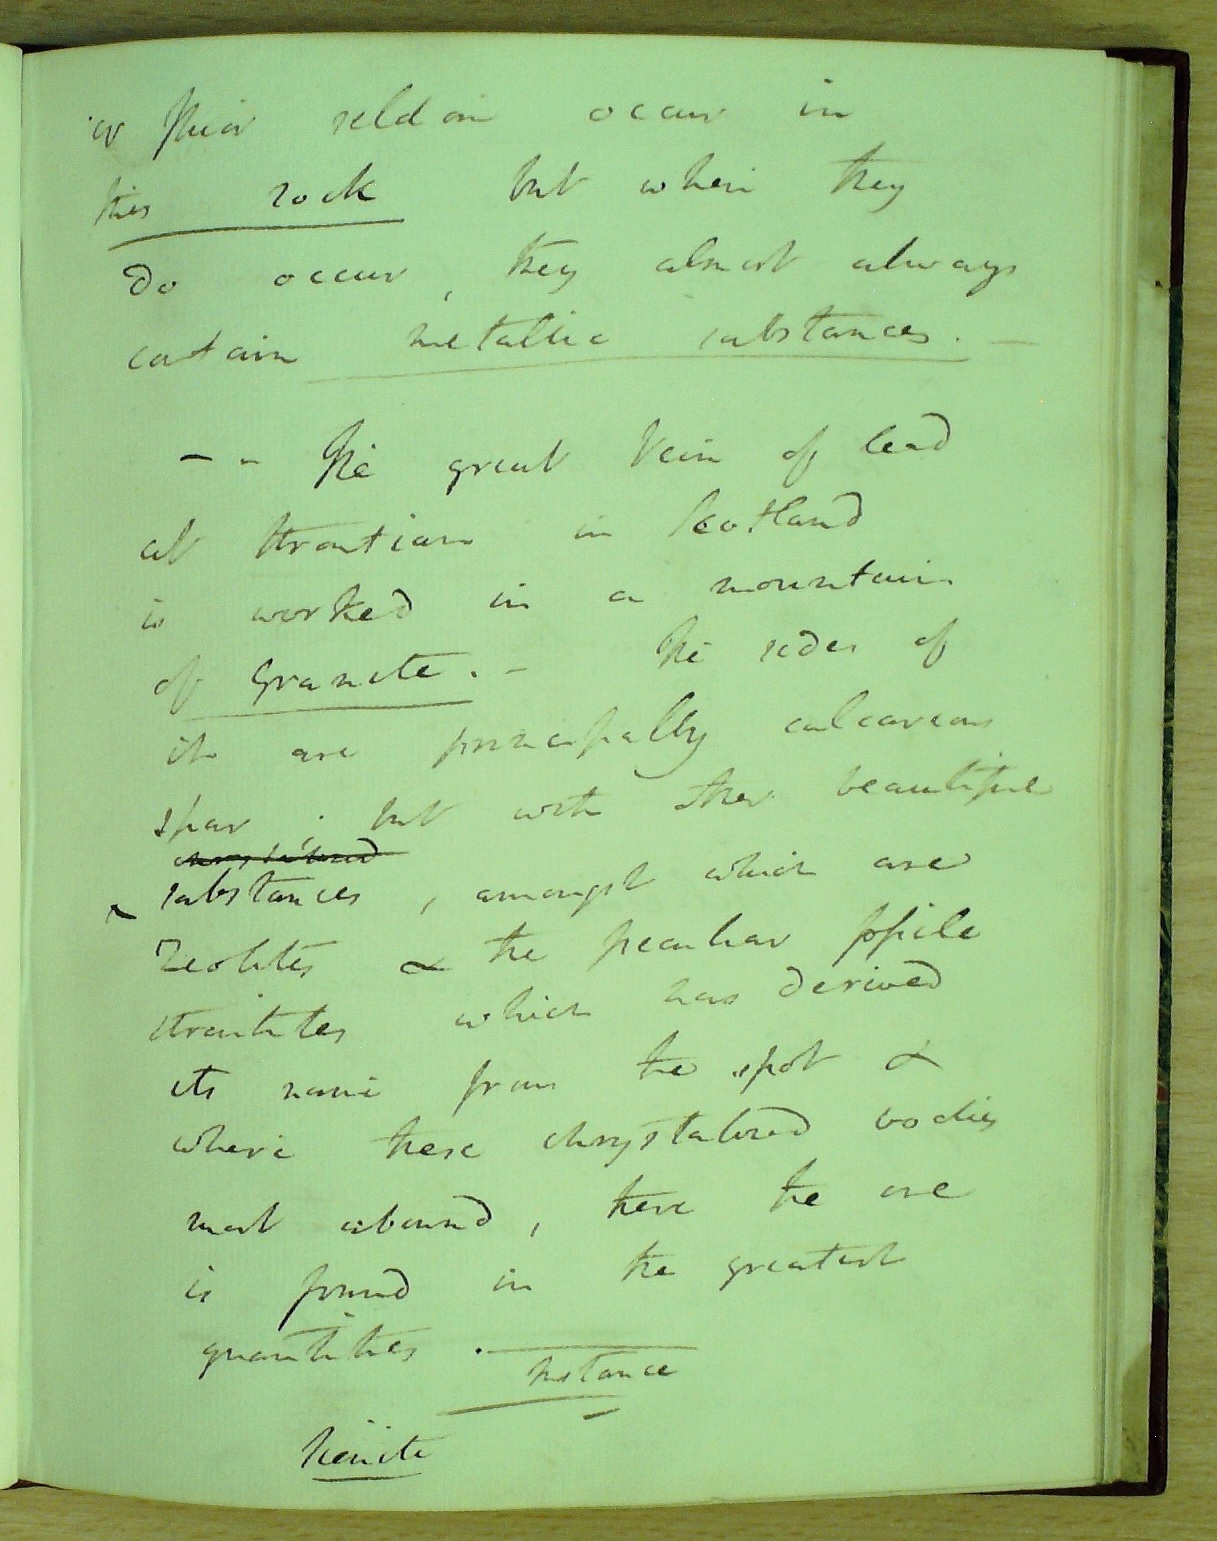 or Fluor seldom occur in
this rock but when they
do occur, they almost always
contain metallic substances. —
- - The great Vein of lead
at Strontian in Scotland
is worked in a mountain
of Granite. - The sides of
it are principally calcareous
spar. but with other beautiful
chrystalized
substances, amongst which are
Zeolites & the peculiar fossile
Strontites which has derived
its name from the spot &
where these chrystalized bodies
most abound, there the ore
is found in the greatest
quantities. —
Instance
Sienite